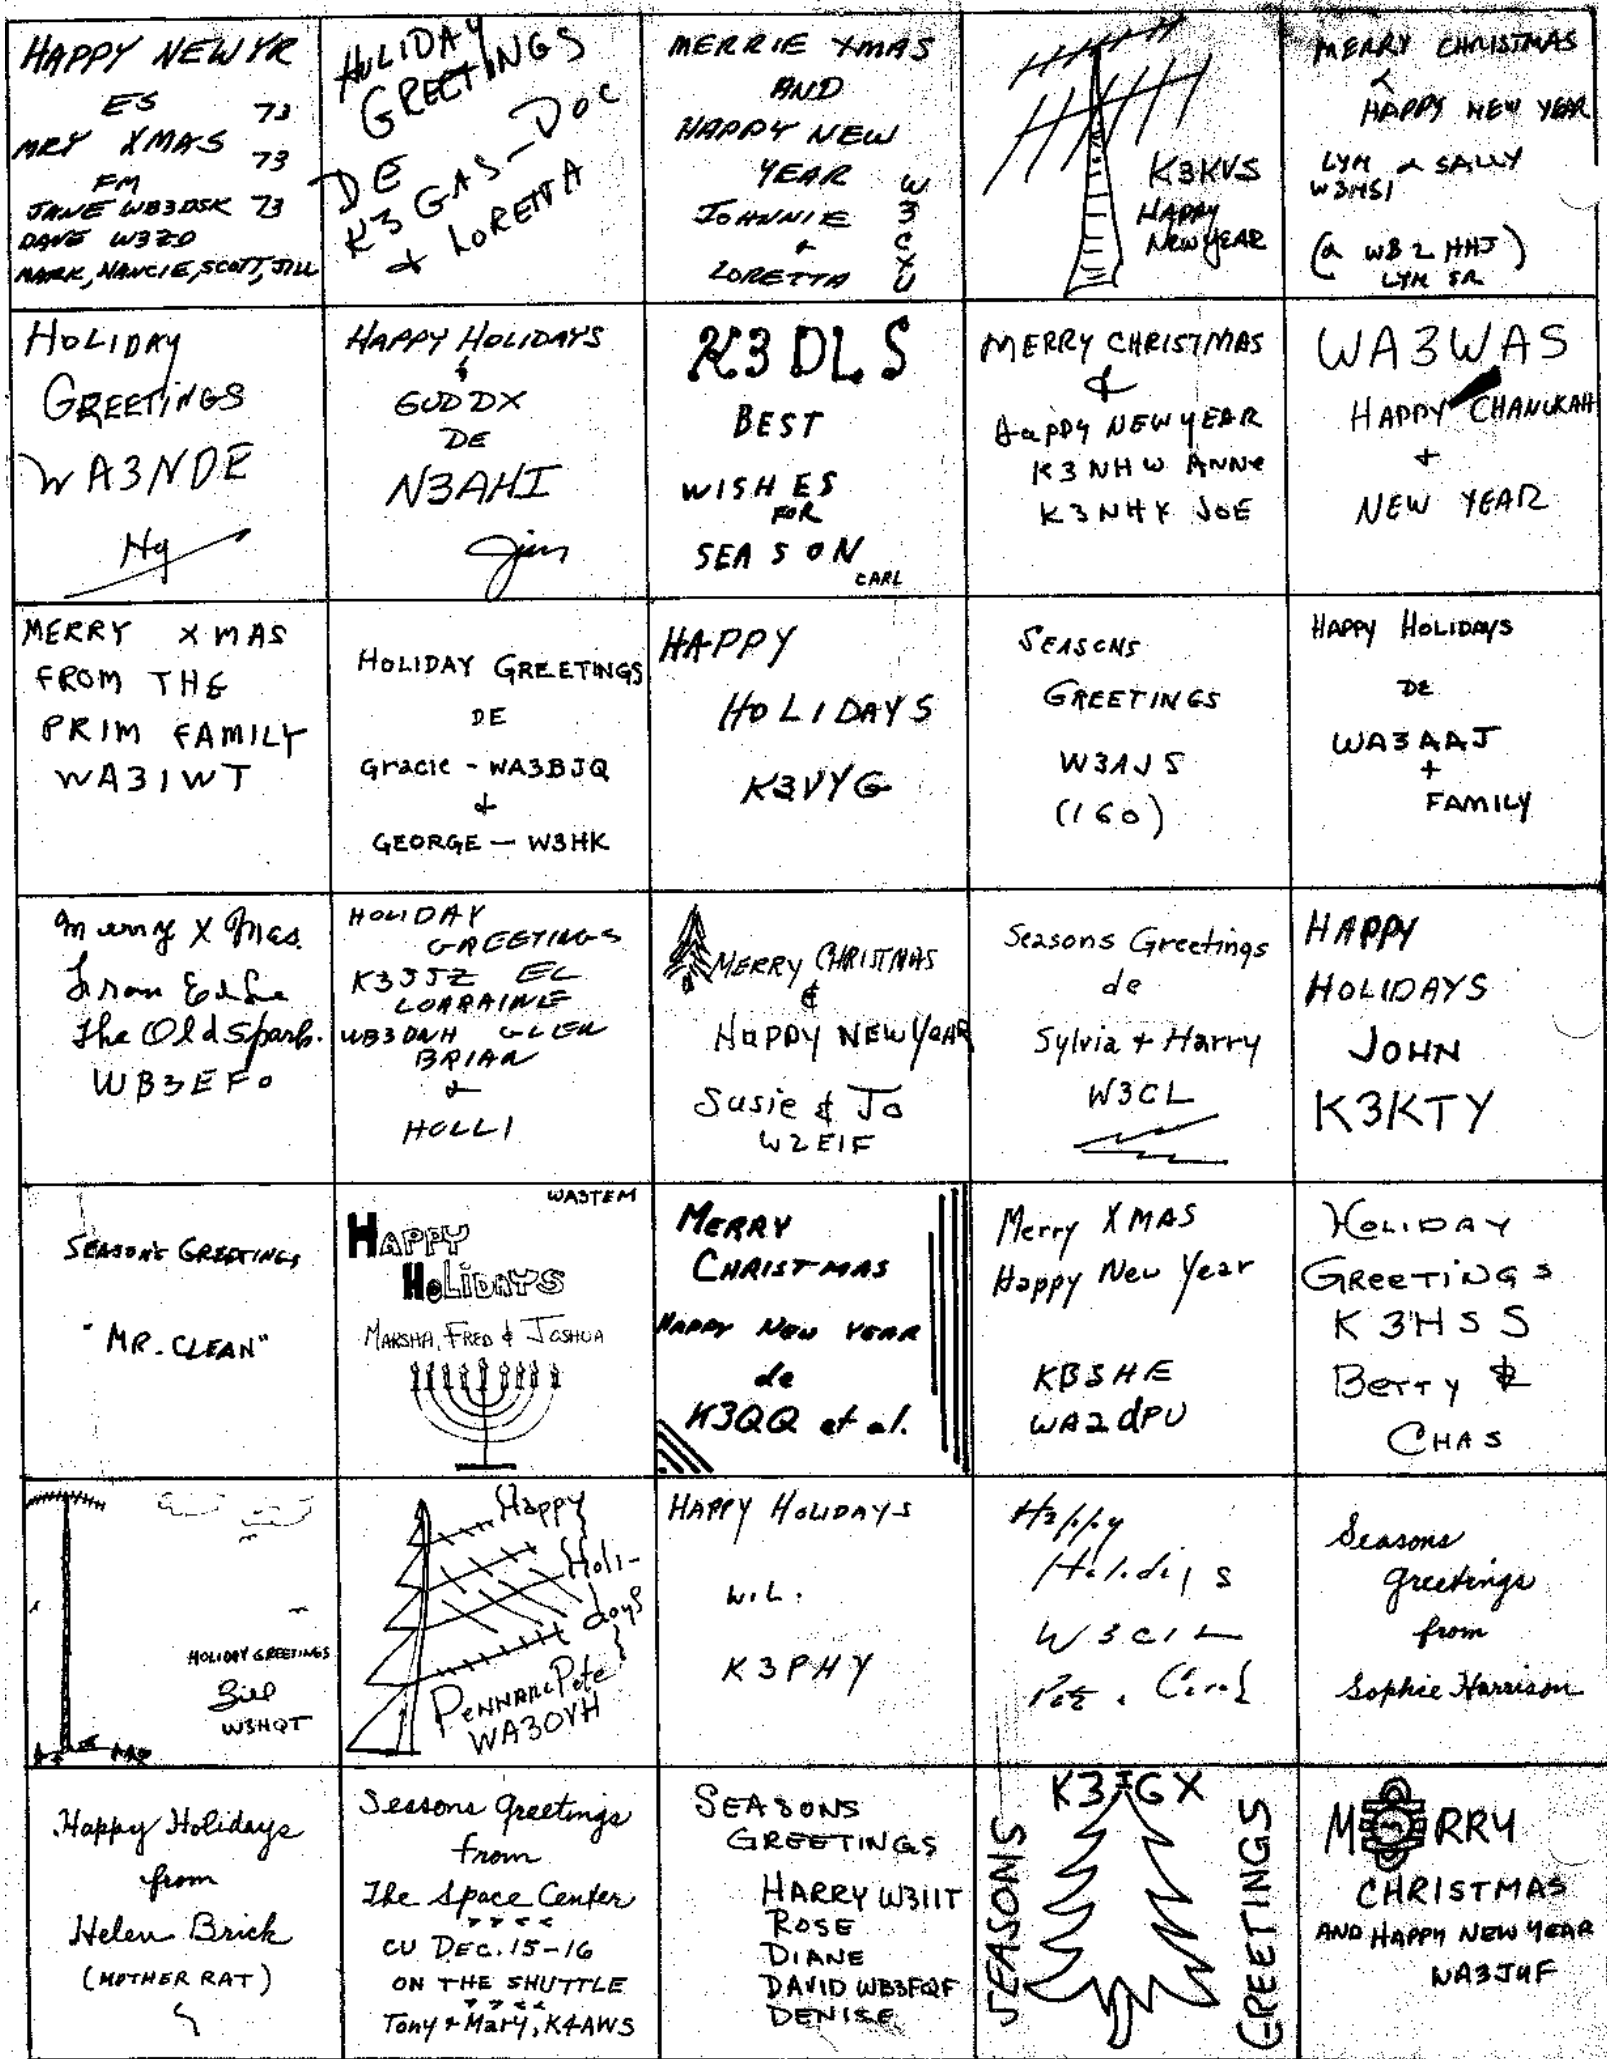 HAPPY NEW YR
ES 73
MRY XMAS 73
FM
JANE WB3DSK 73
DAVE W3ZD
MARK, NANCIE, SCOTT, JILL
HOLIDAY
GREETINGS
DE
K3GAS-DOC
& LORETTA
MERRIE XMAS
AND
HAPPY NEW
YEAR
JOHNNIE
+
LORETTA
W3CXU
K3KVS
HAPPY
NEW YEAR
MERRY CHRISTMAS
&
HAPPY NEW YEAR
LYN & SALLY
W3MSI
(& WB2HHJ)
LYN SR
HOLIDAY
GREETINGS
WA3NDE
Hy
HAPPY HOLIDAYS
&
GUD DX
DE
N3AHI
Jim
K3DLS
BEST
WISHES
FOR
SEASON
CARL
MERRY CHRISTMAS
&
HAPPY NEW YEAR
K3NHW ANNE
K3NHY JOE
WA3WAS
HAPPY CHANUKAH
+
NEW YEAR
MERRY XMAS
FROM THE
PRIM FAMILY
WA3IWT
HOLIDAY GREETINGS
DE
Gracie - WA3BJQ
&
GEORGE - W3HK
HAPPY
HOLIDAYS
K3VYG
SEASONS
GREETINGS
W3AJS
(160)
HAPPY HOLIDAYS
DE
WA3AAJ
+
FAMILY
Merry X Mas.
From
The Old Spark.
WB3EFO
HOLIDAY
GREETINGS
K3JJZ EL
LORRAINE
WB3DNH GLEN
BRIAN
&
HOLLI
MERRY CHRISTMAS
&
HAPPY NEW YEAR
Susie & Jo
W2EIF
Seasons Greetings
de
Sylvia + Harry
W3CL
HAPPY
HOLIDAYS
JOHN
K3KTY
SEASON'S GREETINGS
"MR. CLEAN"
WA3TEM
HAPPY
HOLIDAYS
MARSHA, FRED & JOSHUA
MERRY
CHRISTMAS
HAPPY NEW YEAR
de
K3QQ et al.
Merry XMAS
Happy New Year
KB3HE
WA2dPU
HOLIDAY
GREETINGS
K3HSS
BETTY &
CHAS
HOLIDAY GREETINGS
Bill
W3HQT
Happy
Holi-
days
PENNARC Pete
WA3OVH
HAPPY HOLIDAYS
W.L.
K3PHY
Happy
Holidays
W3CIL
Pete & Carol
Seasons
Greetings
from
Sophie Harrison
Happy Holidays
from
Helen Brick
(MOTHER RAT)
Seasons Greetings
from
The Space Center
CU DEC. 15-16
ON THE SHUTTLE
Tony + Mary, K4AWS
SEASONS
GREETINGS
HARRY W3IIT
ROSE
DIANE
DAVID WB3FQF
DENISE
K3IGX
SEASONS
GREETINGS
MERRY
CHRISTMAS
AND HAPPY NEW YEAR
WA3JUF